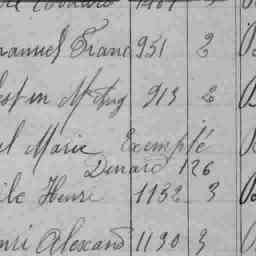 anuel Franc 951 2
M Aug 913 2
l Marie Exempté
Denard 126
ile Henri 1132 3
nri Alexand 1130 3